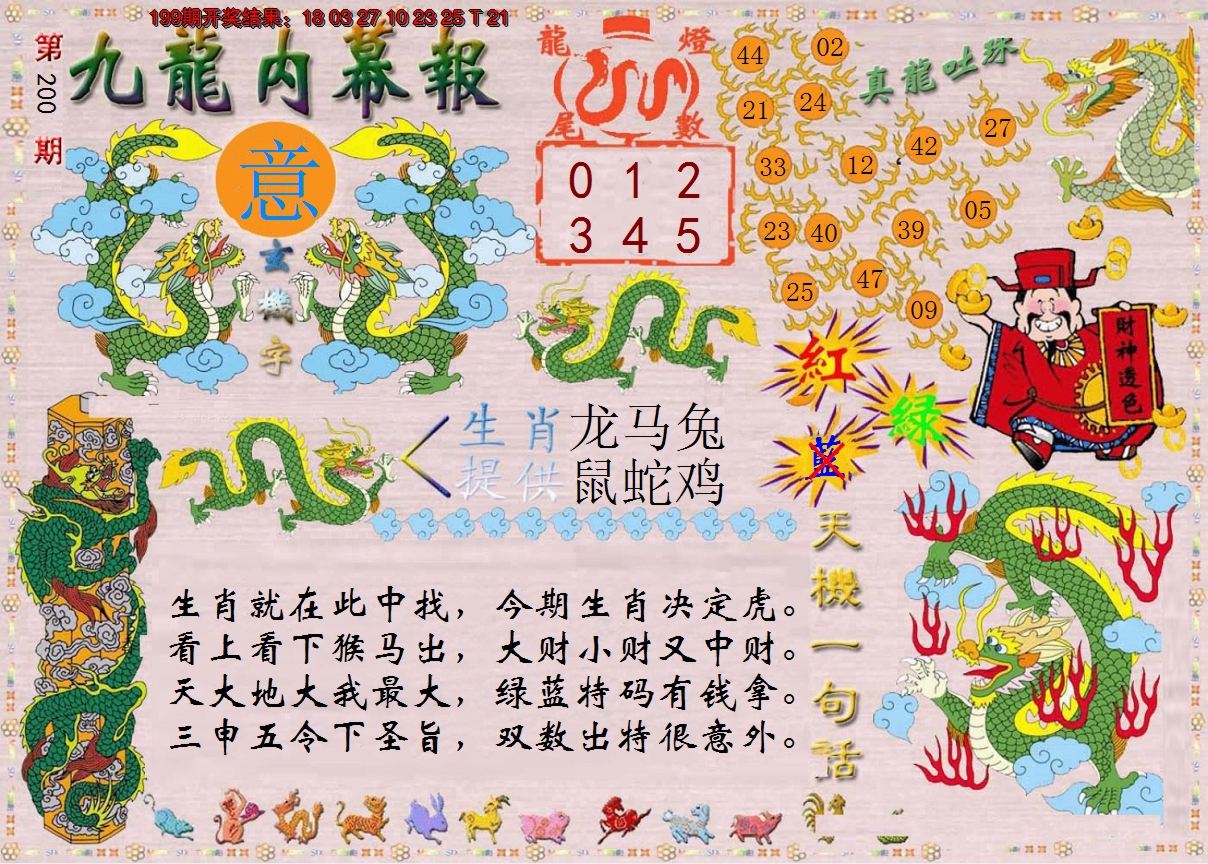 199期开奖结果：18 03 27 10 23 25 T 21
第200期
九龍内幕報
意
玄機字
龍燈
尾數
0 1 2
3 4 5
真龍吐珠
44
02
21
24
33
12
42
27
23
40
39
05
25
47
09
財神透色
紅
绿
藍
生肖提供
龙马兔
鼠蛇鸡
天機一句話
生肖就在此中找，今期生肖决定虎。
看上看下猴马出，大财小财又中财。
天大地大我最大，绿蓝特码有钱拿。
三申五令下圣旨，双数出特很意外。